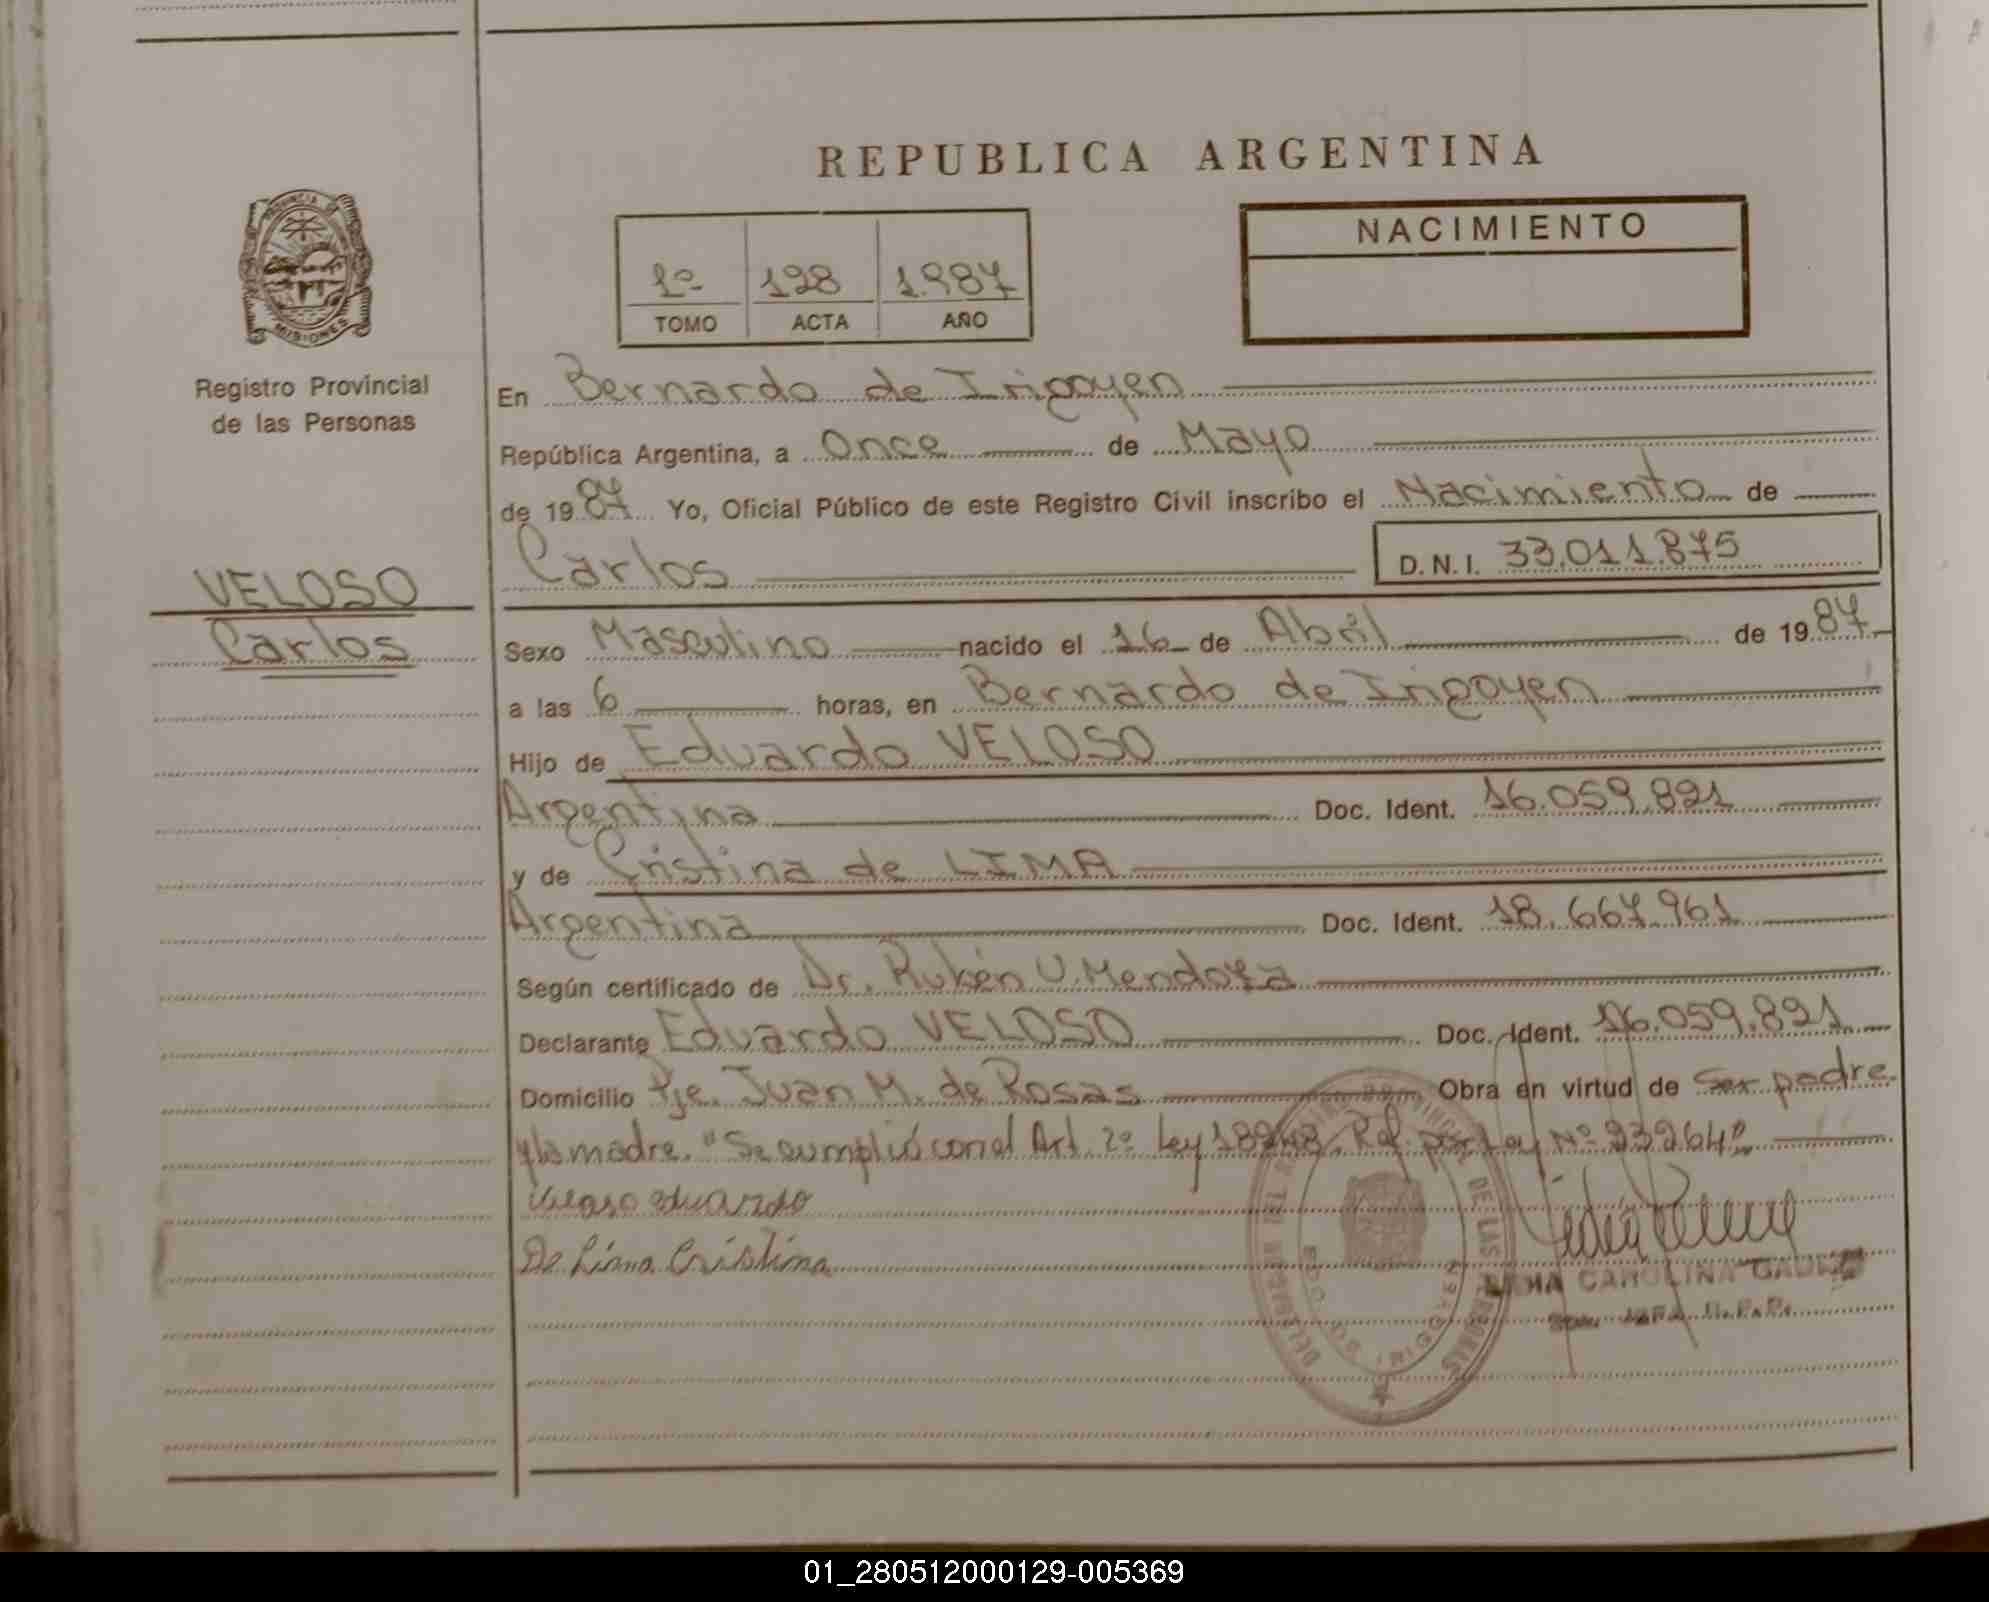 REPUBLICA ARGENTINA
NACIMIENTO
1º 128 1.987
TOMO ACTA AÑO
PROVINCIA DE MISIONES
Registro Provincial
de las Personas
VELOSO
Carlos
En Bernardo de Irigoyen
República Argentina, a Once de Mayo
de 1987 Yo, Oficial Público de este Registro Civil inscribo el Nacimiento de
Carlos D.N.I. 33.011.875
Sexo Masculino nacido el 16 de Abril de 1987
a las 6 horas, en Bernardo de Irigoyen
Hijo de Eduardo VELOSO
Argentina Doc. Ident. 16.059.821
y de Cristina de LIMA
Argentina Doc. Ident. 18.667.961
Según certificado de Dr. Rubén U. Mendoza
Declarante Eduardo VELOSO Doc. Ident. 16.059.821
Domicilio Pje. Juan M. de Rosas Obra en virtud de Ser padre
y la madre. "Se cumplió con el Art. 2º Ley 18248, Ref. por Ley Nº 23264"
Veloso Eduardo
De Lima Cristina
CAROLINA
01_280512000129-005369